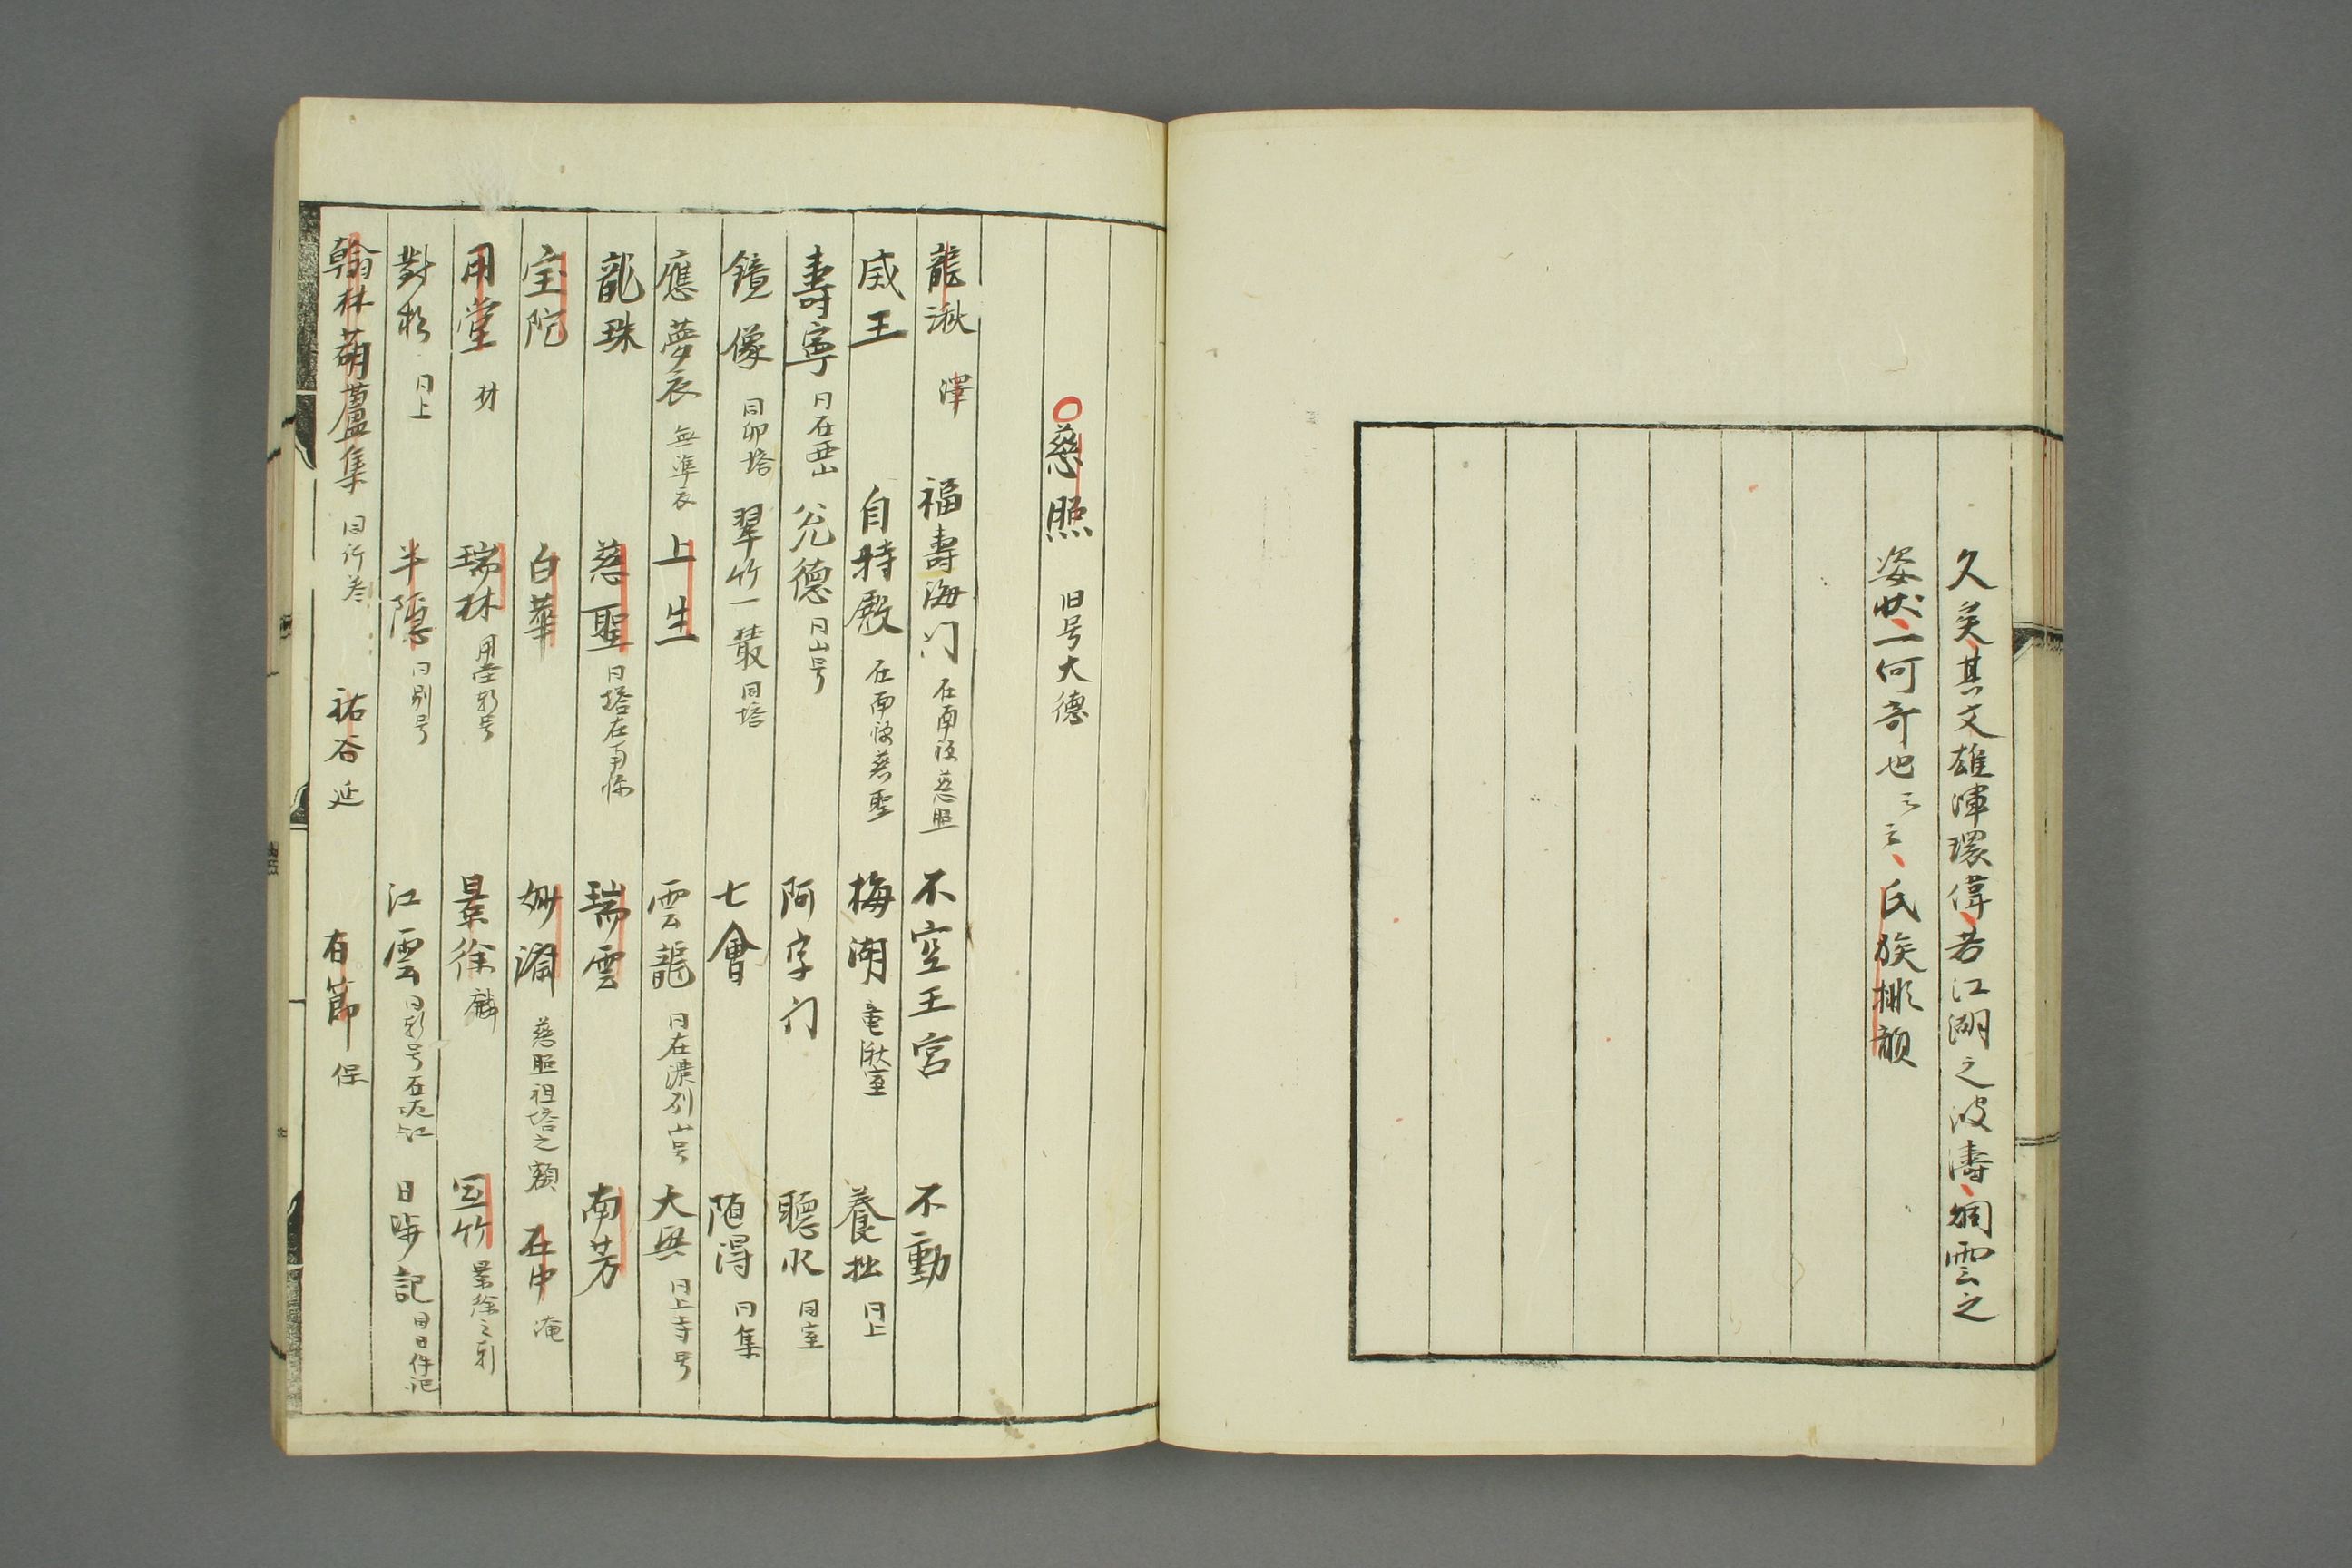 久矣其文雄渾環偉若江湖之波濤絅雲之
姿状一何奇也云云氏族排韻
慈照 旧号大德
龍湫 澤 福壽海门 在南禅慈照 不空王宮 不動
威王 自特殿 在南禅慈聖 梅湖 竜湫室 養拙 同上
壽寧 同在 山 兊德 同山号 阿字门 聽 同室
鏡像 同卯塔 翠竹一叢 同塔 七會 随得 同集
應夢衣 無準衣 上生 雲龍 同在濃列山号 大興 同上寺号
龍珠 慈聖 同塔在南禅 瑞雲 南芳
宝陀 白華 慈照祖塔之額 在中 淹
用堂 材 瑞林 用堂新号 景徐 麟 宜竹 景徐之軒
對松 同上 半隱 同別号 江雲 同新号在 江 日晦記 同日件記
翰林葫蘆集 同行巻 祐谷 延 有節 保